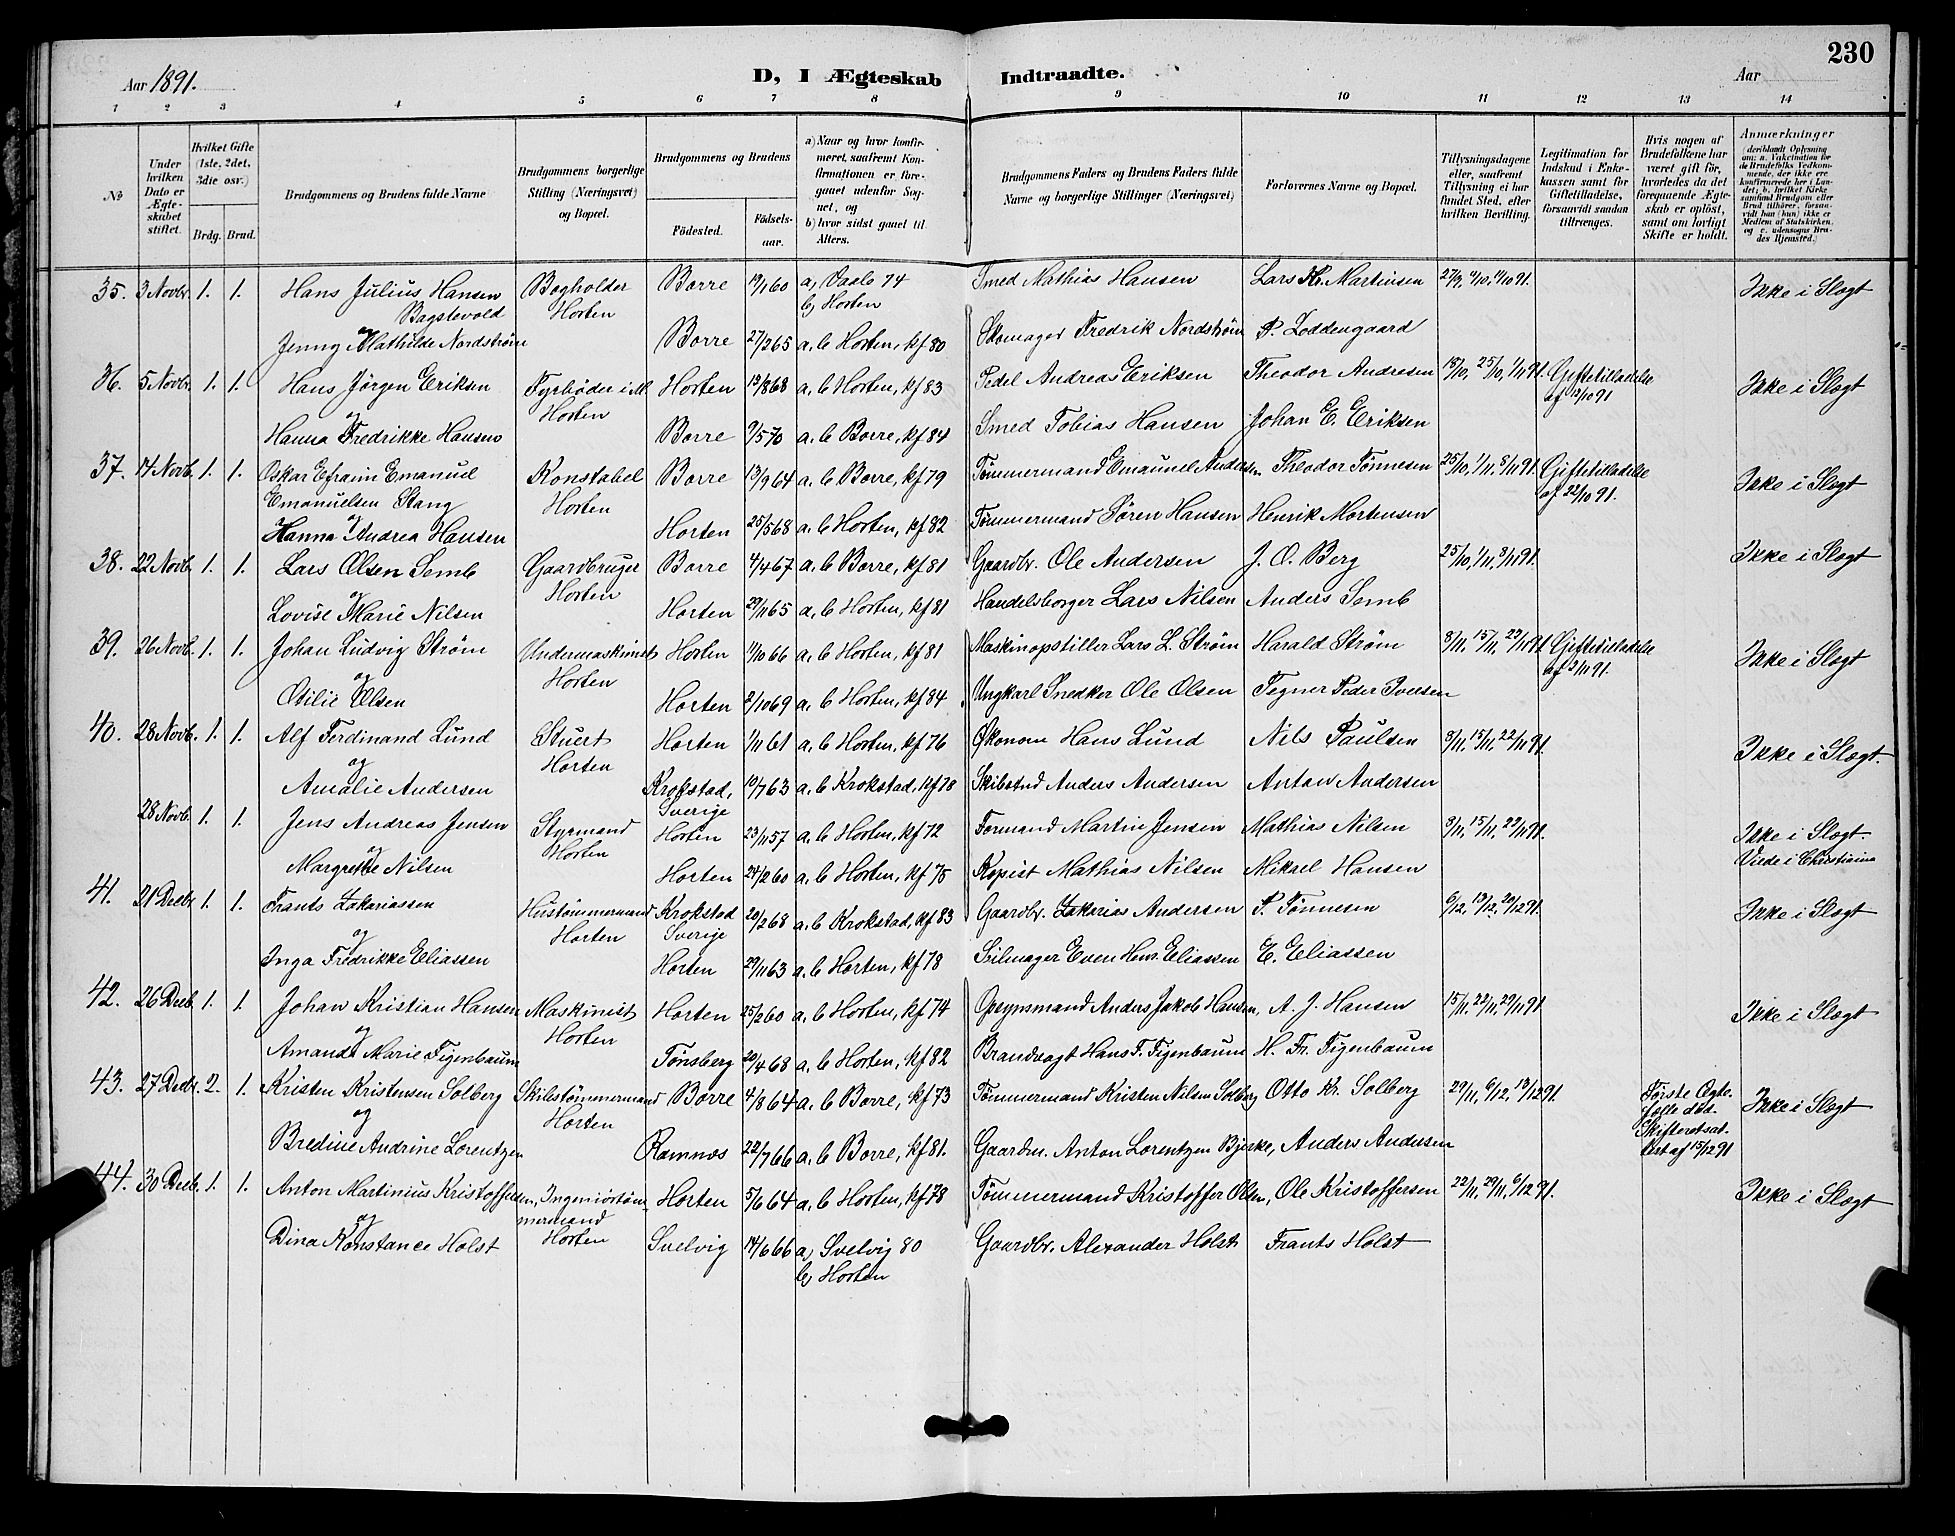 Aar 1891. D, I Ægteskab Indtraadte. Aar 230
1 2 3 4 5 6 7 8 9 10 11 12 13 14
No
Under hvilken Dato er Ægteskabet stiftet.
Hvilket Gifte (1ste, 2det, 3die osv.)
Brdg. Brud.
Brudgommens og Brudens fulde Navne
Brudgommens borgerlige Stilling (Næringsvei) og Bopæl.
Brudgommens og Brudens
Fødested. Fødselsaar.
a) Naar og hvor konfirmeret, saafremt Konfirmationen er foregaaet udenfor Sognet, og
b) hvor sidst gaaet til Alters.
Brudgommens Faders og Brudens Faders fulde Navne og borgerlige Stillinger (Næringsvei)
Forlovernes Navne og Bopæl.
Tillysningsdagene eller, saafremt Tillysning ei har fundet Sted, efter hvilken Bevilling.
Legitimation for Indskud i Enkekassen samt for Giftetilladelse, forsaavidt saadan tiltrænges.
Hvis nogen af Brudefolkene har været gift før, hvorledes da det foregaaende Ægteskab er opløst, samt om lovligt Skifte er holdt.
Anmærkninger (deriblandt Oplysning om: a. Vakcination for de Brudefolks Vedkommende, der ikke ere konfirmerede her i Landet; b. hvilket Kirkesamfund Brudgom eller Brud tilhører, forsaavidt han (hun) ikke er Medlem af Statskirken, og c. udensogns Brudes Hjemsted.)
35. 3 Novbr. 1. 1. Hans Julius Hansen Bogholder Borre 19/1 60 a, Vaale 74 Smed Mathias Hansen Lars Kr. Martinsen 27/9, 4/10, 11/10 91. Ikke i Slægt
Bagstevold Horten b, Horten
og
Jenny Mathilde Nordstrøm Borre 27/2 65 a. b Horten, kf 80 Skomager Fredrik Nordstrøm P. Loddengaard
36. 5 Novbr. 1. 1. Hans Jörgen Eriksen Fyrbøder i M. Horten 13/8 68 a. b Horten, kf 83 Pedel Andreas Eriksen Theodor Andresen 18/10, 25/10, 1/11 91. Giftetilladelse Ikke i Slægt
og Horten af 12/10 91
Hanna Fredrikke Hansen Borre 9/5 70 a. b Borre, kf 84 Smed Tobias Hansen Johan E. Eriksen
37. 14 Novb. 1. 1. Oskar Efraim Emanuel Konstabel Borre 13/9 64 a. b Borre, kf 79 Tømmermand Emaunel Andersen Theodor Tønnesen 25/10, 1/11, 8/11 91. Giftetilladelse Ikke i Slægt
Emanuelsen Stang Horten af 22/10 91.
og
Hanna Andrea Hansen Horten 25/5 68 a. b Horten, kf 82 Tømmermand Søren Hansen Henrik Mortensen
38. 22 Novb. 1. 1. Lars Olsen Semb Gaardbruger Borre 4/4 67 a. b Borre, kf 81 Gaardbr. Ole Andersen J. O. Berg 25/10, 1/11, 8/11 91. Ikke i Slægt
og Horten
Lovise Marie Nilsen Horten 29/11 65 a. b Horten, kf 81 Handelsborger Lars Nilsen Anders Semb
39. 26 Novb. 1. 1. Johan Ludvig Strøm Undermaskinist Horten 11/10 66 a. b Horten, kf 81 Maskinopstiller Lars L. Strøm Harald Strøm 8/11, 15/11, 22/11 91. Giftetilladelse Ikke i Slægt
og Horten af 2/11 91.
Otilie Olsen Horten 2/10 69 a. b Horten, kf 84 Ungkarl Snedker Ole Olsen Tegner Peder Iversen
40. 28 Novb. 1. 1. Alf Ferdinand Lund Stuert Horten 1/11 61 a. b Horten, kf 76 Økonom Hans Lund Nils Paulsen 8/11, 15/11, 22/11 91. Ikke i Slægt.
og Horten
Amalie Andersen Krokstad, 10/7 63 a. b Krokstad, kf 78 Anders Andersen Anton Andersen
Sverige
28 Novb. 1. 1. Jens Andreas Jensen Styrmand Horten 23/11 57 a. b Horten, kf 72 Formand Martin Jensen Mathias Nilsen 8/11, 15/11, 22/11 91. Ikke i Slægt.
og Horten Viede i Christiania
Margrethe Nilsen Horten 24/2 60 a. b Horten, kf 75 Kopist Mathias Nilsen Mikael Hansen
41. 21 Decbr. 1. 1. Frants Zakariassen Hustømmermand Krokstad 20/2 68 a. b Krokstad, kf 83 Gaardbr. Zakarias Andersen P. Tønnesen 6/12, 13/12, 20/12 91. Ikke i Slægt
og Horten Sverige
Inga Fredrikke Eliassen Horten 29/11 63 a. b Horten, kf 78 Seilmager Even Henr. Eliassen E. Eliassen
42. 26 Decb. 1. 1. Johan Kristian Hansen Maskinist Horten 25/2 60 a. b Horten, kf 74 Opsynsmand Anders Jakob Hansen, A. J. Hansen 15/11, 22/11, 29/11 91 Ikke i Slægt
og Horten
Amanda Marie Figenbaum Tønsberg 20/4 68 a. b Horten, kf 82 Brandvagt Hans F. Figenbaum H. Fr. Figenbaum
43. 27 Decbr. 2. 1. Kristen Kristensen Solberg Skibstømmermand Borre 4/8 64 a. b Borre, kf 73 Tømmermand Kristen Nilsen Solberg Otto Kr. Solberg 29/11, 6/12, 13/12 91. Første Ægte- Ikke i Slægt
og Horten fælle død.
Bredine Andrine Lorentzen Ramnæs 22/7 66 a. b Borre, kf 81. Gaardm. Anton Lorentzen Bjerke, Anders Andersen Skifteretsat-
test af 15/12 91
44. 30 Decb. 1. 1. Anton Martinius Kristoffersen, Ingeniörtøm- Horten 5/6 64 a. b Horten, kf 78 Tømmermand Kristoffer Olsen, Ole Kristoffersen 22/11, 29/11, 6/12 91. Ikke i Slægt
og mermand
Dina Konstance Holst Horten Svelvig 14/6 66 a, Svelvig 80 Gaardbr. Alexander Holst Frants Holst
b, Horten